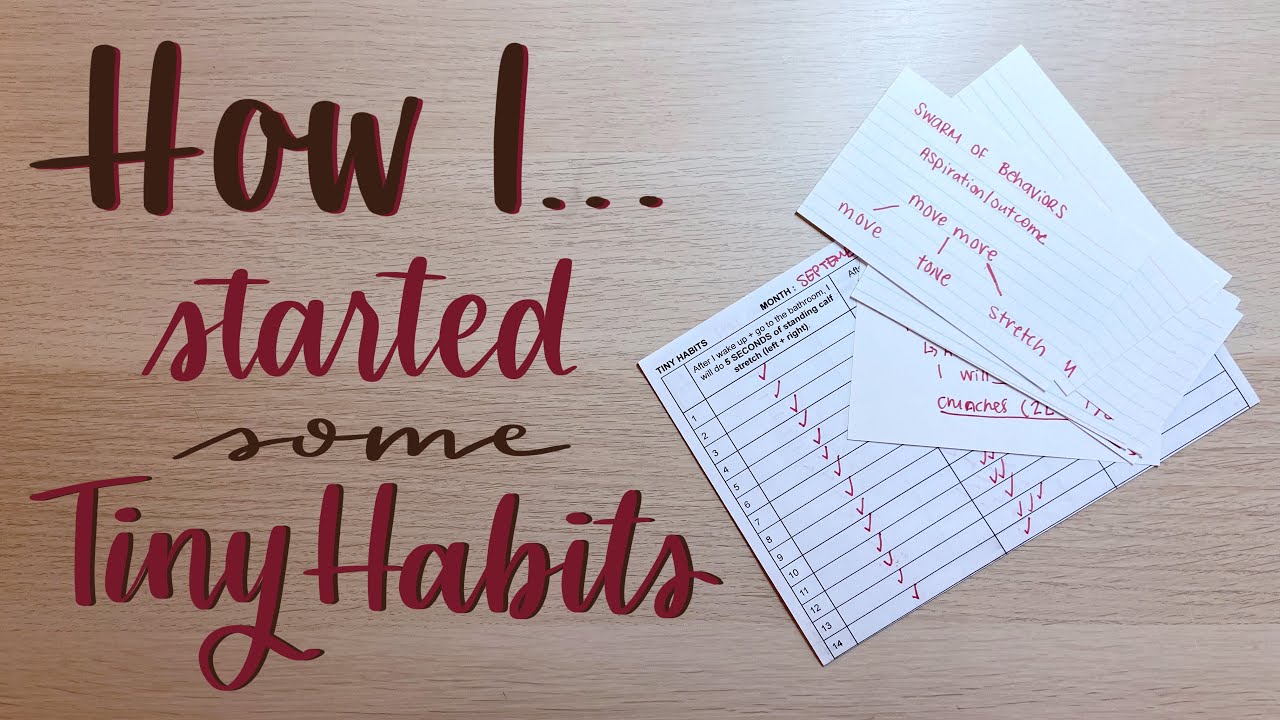 How I...
started
some
Tiny Habits
SWARM OF BEHAVIORS
ASPIRATION/outcome
move more
move
tone
stretch
MONTH:
TINY HABITS
After I wake up + go to the bathroom, I
will do 5 SECONDS of standing calf
stretch (left + right)
I will
crunches
1
2
3
4
5
6
7
8
9
10
11
12
13
14